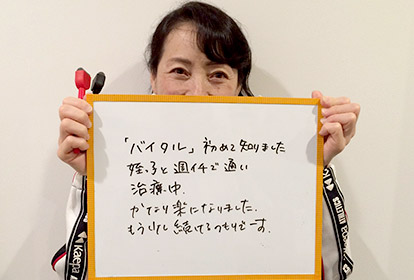 「バイタル」初めて知りました
姪っ子と週イチで通い
治療中.
かなり楽になりました.
もう少し続けるつもりです.
Kaepa
ATHLETICS
Kaepa